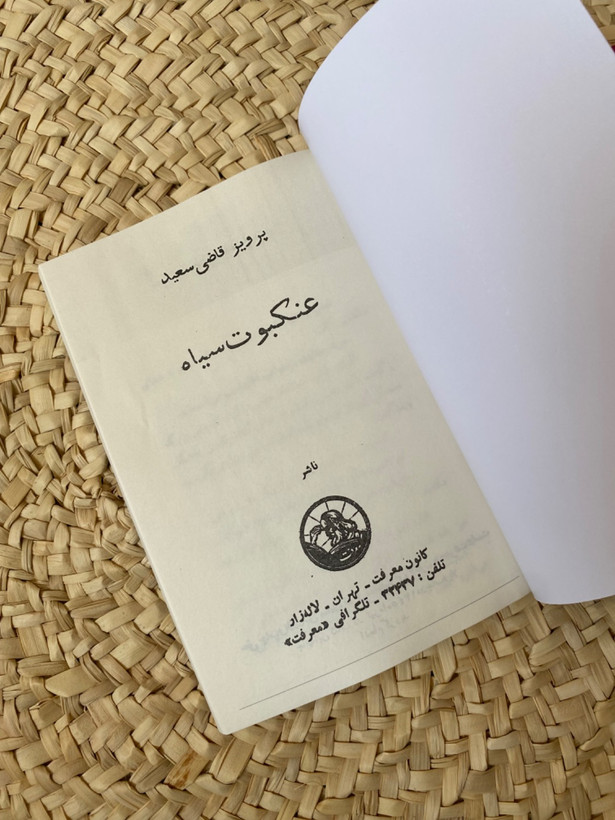 پرویز قاضی سعید
عنکبوت سیاه
ناشر
کانون معرفت - تهران - لاله‌زار
تلفن : ۳۲۴۳۷ - تلگرافی «معرفت»